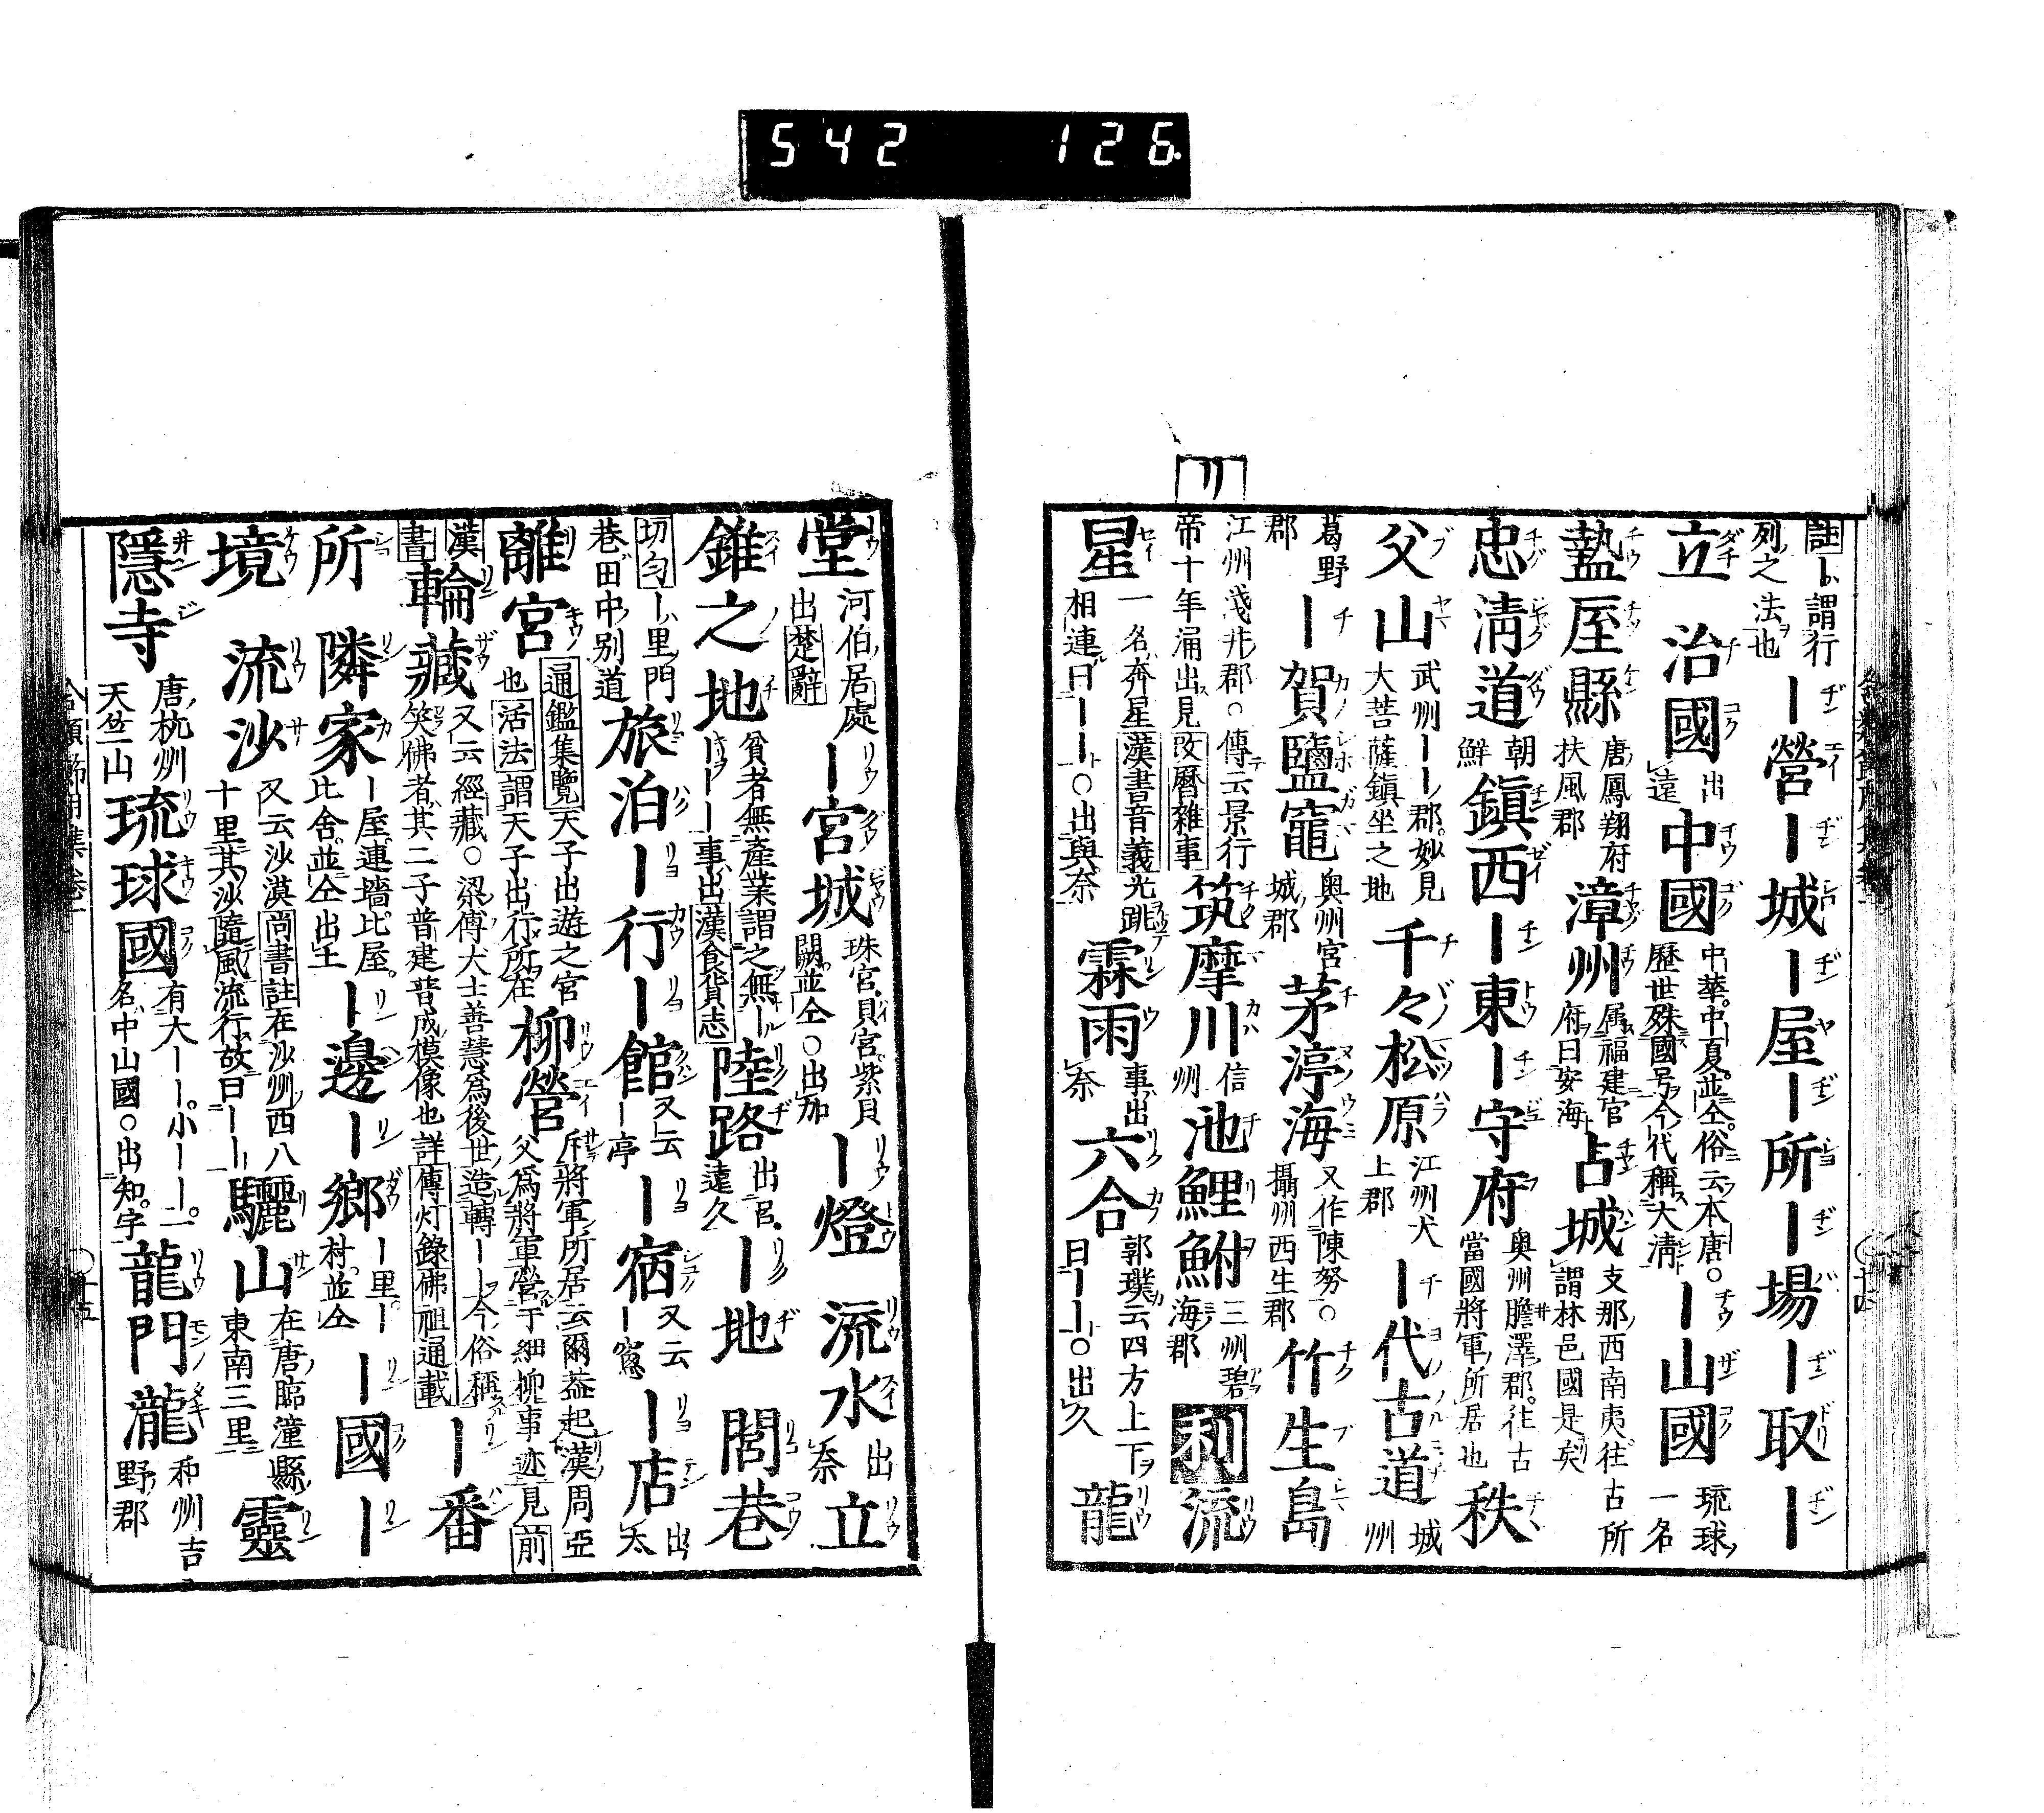 542 126.
リ
註ー謂行
列之法也
ー營ー城ー屋ー所ー場ー取ー
立 治國
出
遠
中國
中華。中夏。並仝。俗云本唐。○
歴世殊國号今代稱大淸
ー山國
琉球
一名
盩厔縣
唐鳳翔府
扶風郡
漳州
属福建官
府曰安海
占城
支那西南夷往古所
謂林邑國是矣
忠淸道
朝
鮮
鎭西ー東ー守府
奥州膽澤郡往古
當國將軍所居也
秩
父山
武州ーー郡。妙見
大菩薩鎭坐之地
千々松原
江州犬
上郡
ー代古道
城
州
葛野
郡
ー賀鹽竈
奥州宮
城郡
茅渟海
又作陳努。○
攝州西生郡
竹生島
江州淺井郡。○傳云景行
帝十年涌出見改暦雜事
筑摩川
信
州
池鯉鮒
三州碧
海郡
利
流
星
一名奔星漢書音義光跳
相連曰ーー○出與奈
霖雨
事出
奈
六合
郭璞云四方上下
曰ーー○出久
龍
堂
河伯居處
出楚辭
ー宮城
珠宮。貝宮紫貝
闕。並仝○出加
ー燈 流水
出
奈
立
錐之地
貧者無產業謂之無ー
ーーー事出漢食貨志
陸路
出呂。
遠久
ー地 閭巷
切匀ー里門
巷田中別道
旅泊ー行ー館
又云
ー亭
ー宿
又云
ー窓
ー店
出
太
離宮
通鑑集覽天子出遊之宮
也活法謂天子出行所在
柳營
斥將軍所居云爾蓋起漢周亞
父爲將軍營于細柳事迹見前
漢
書
輪藏
又云經藏。○梁傅大士善慧爲後世造轉ーー今俗稱
笑佛者其二子普建普成模像也詳傳灯錄佛祖通載
ー番
所 隣家
ー屋連墻比屋。
比舍。並仝出土
ー邊ー鄉
ー里。ー
村。並仝
ー國ー
境 流沙
又云沙漠尚書註在沙洲西八
十里其沙隨風流行故曰ーー
驪山
在唐臨潼縣
東南三里
靈
隱寺
唐杭州
天竺山
琉球國
有大ーー。小ーー。二
名中山國○出知。字
龍門瀧
和州吉
野郡